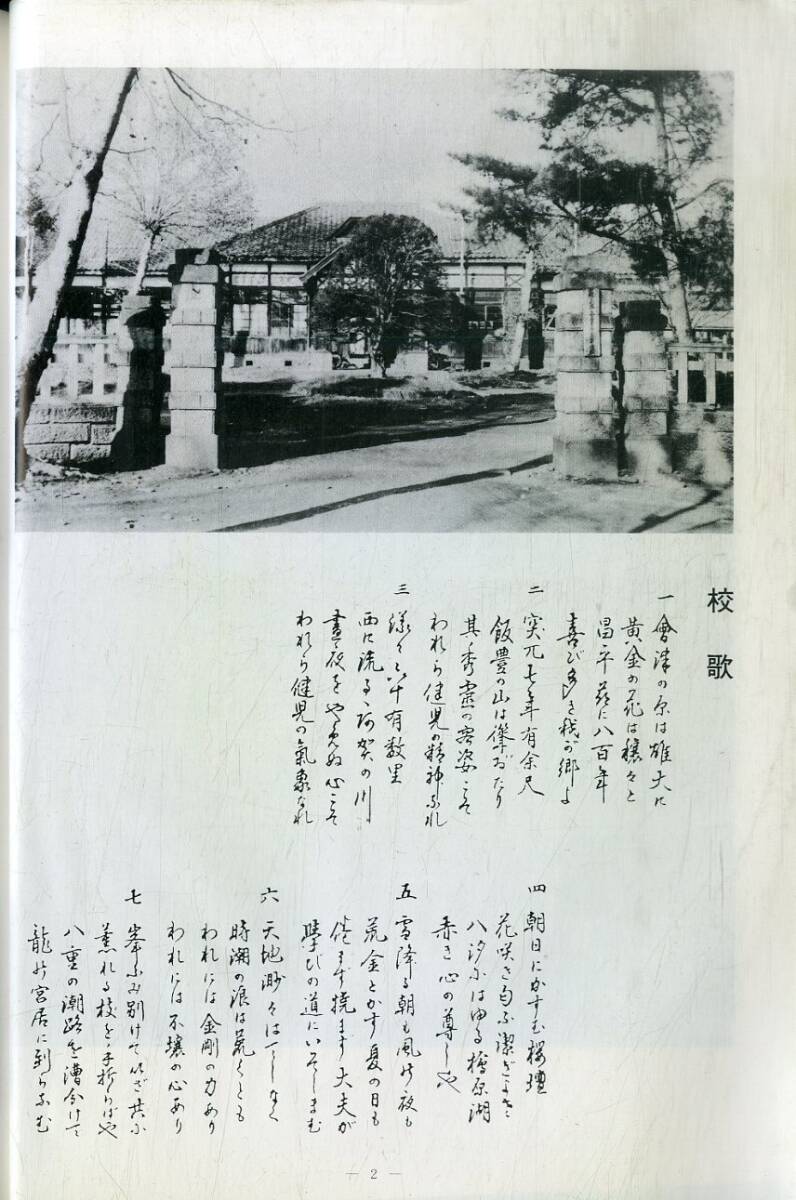 校歌
一 會津の原は雄大に
黄金の花は穣々と
昌平茲に八百年
喜び多き我が郷よ
二 突兀七千有余尺
飯豊の山は聳おたり
其の秀霊の容姿こそ
われら健児の精神なれ
三 様々六十有数里
西に流るゝ阿賀の川
晝夜をやすめぬ心こそ
われら健児の氣象なれ
四 朝日にかすむ桜壇
花咲き匂ふ潔ぎよさ
八汐にはゆる檜原湖
赤き心の尊しや
五 雪降る朝も風の夜も
荒金とかす夏の日も
倦まず撓まず大夫が
學びの道にいそしまむ
六 天地渺々はてしなく
時潮の浪は荒くとも
われには金剛の力あり
われには不壊の心あり
七 峯ふみ別けていざ共に
薫れる枝を手折らばや
八重の潮路を漕分けて
龍の宮居に到らなむ
— 2 —